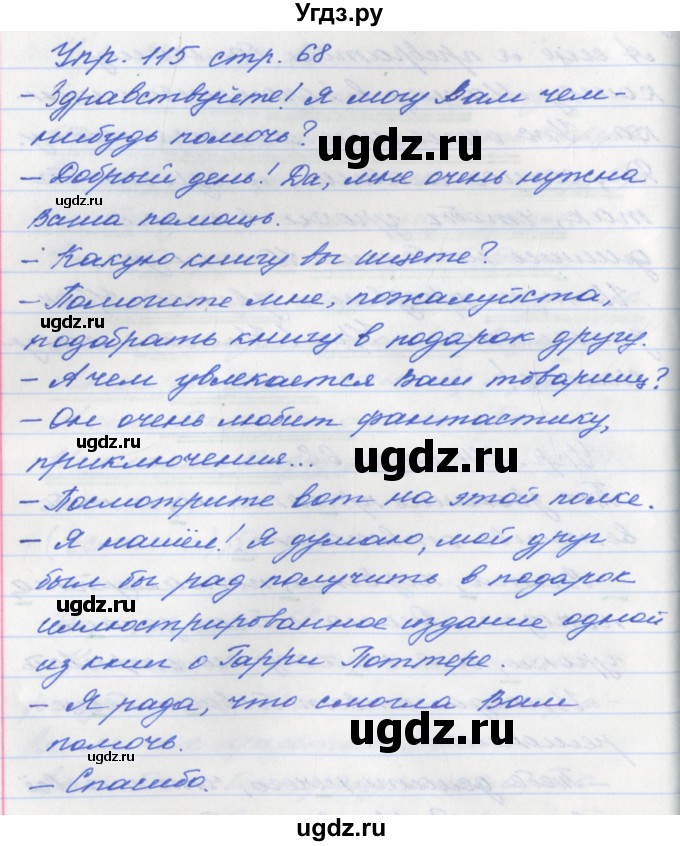 Угдз.ру
Упр. 115 стр. 68
- Здравствуйте! Я могу Вам чем-
нибудь помочь?
ugdz.ru
ugdz.ru
- Добрый день! Да, мне очень нужна
Ваша помощь.
- Какую книгу вы ищете?
- Помогите мне, пожалуйста,
ugdz.ru
подобрать книгу в подарок другу.
- А чем увлекается Ваш товарищ?
- Он очень любит фантастику,
ugdz.ru
приключения...
ugdz.ru
- Посмотрите вот на этой полке.
- Я нашёл! Я думаю, мой друг
был бы рад получить в подарок
ugdz.ru
иллюстрированное издание одной
из книг о Гарри Поттере.
- Я рада, что смогла Вам
ugdz.ru
помочь.
- Спасибо.
ugdz.ru
ugdz.ru